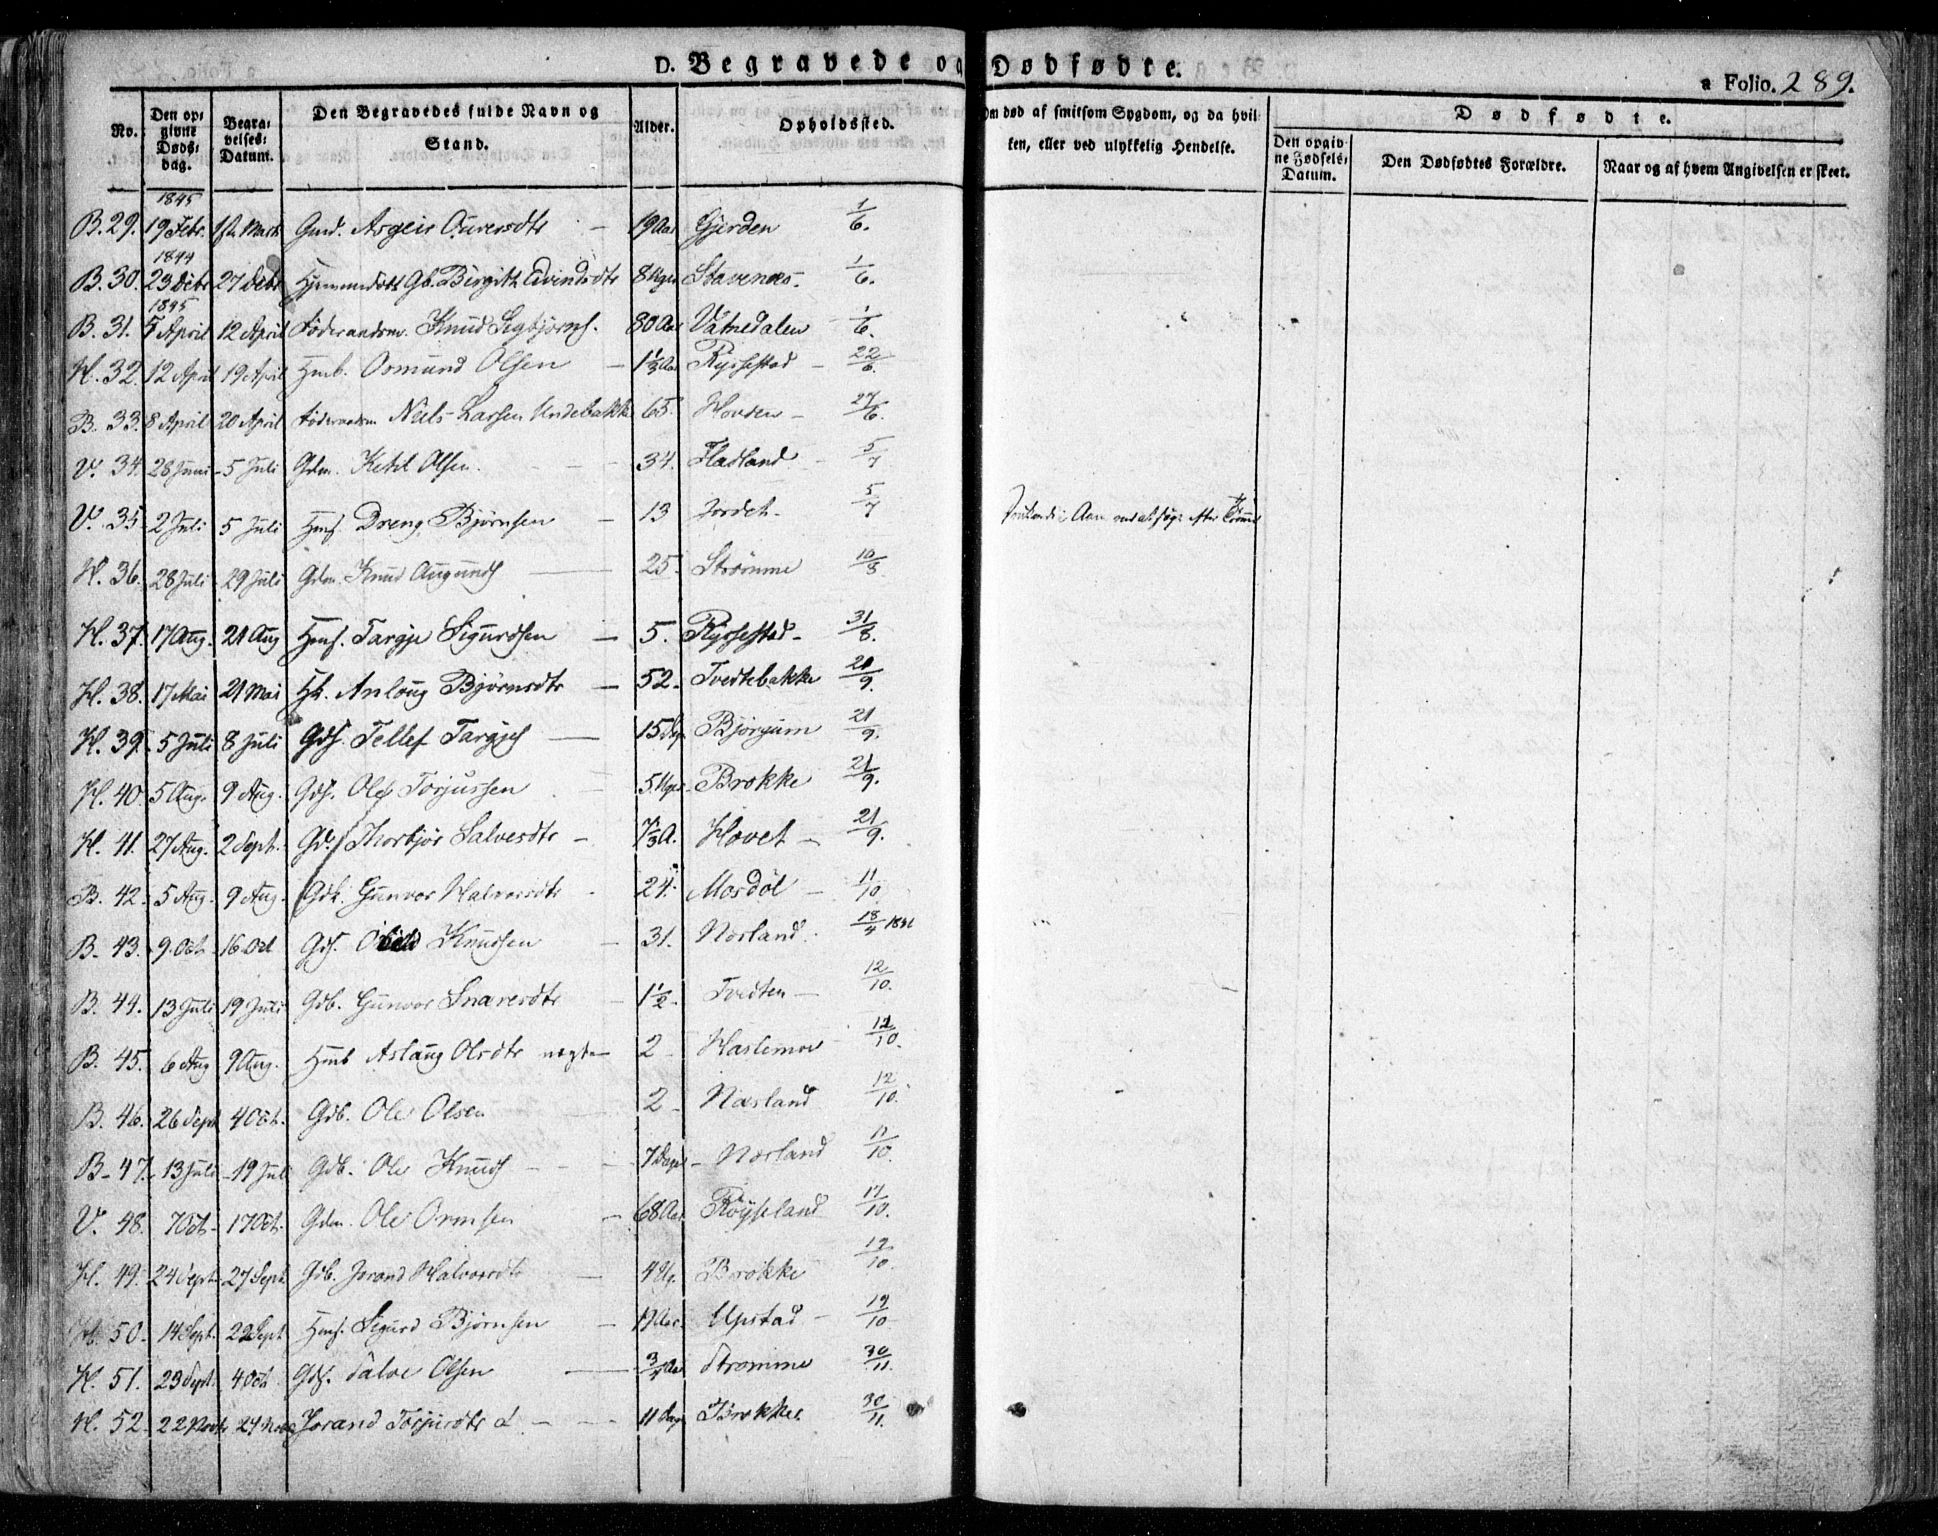 D. Begravede og Dødfødte.
a Folio. 289.
No. Den opgivne Døds-dag. Begravelses-Datum. Den Begravedes fulde Navn og Stand. Alder. Opholdssted. Om død af smitsom Sygdom, og da hvilken, eller ved ulykkelig Hendelse. Dødfødte.
Den opgivne Fødsels-Datum. Den Dødfødtes Forældre. Naar og af hvem Angivelsen er skeet.
1845
B. 29. 19 Febr. Marts Asgeir 19 Aar Gjerden 1/6.
1844
B. 30. 23 Debr 27 Debr Gb. Birgith Eivindsdtr 8 Uger Stavenes. 1/6.
1845
B. 31. 5 April 12 April Føderaadsm. Knud Sigbjørns. 80 Aar Vatnedalen 1/6.
H. 32. 12 April 19 April Hmb. Osmund Olsen 1 1/3 Aar Rysstad 22/6.
B. 33. 8 April 20 April Føderaadsm Niels Larsen Undebakke 65. Hovden 27/6.
V. 34. 28 Juni 5 Juli Gdm. Ketil Olsen. 34. Fladland 5/7
V. 35. 2 Juli 5 Juli Hms. Dreng Bjørnsen 13 Jordet 5/7 Aan ved at søge efter
H. 36. 28 Juli 29 Juli Gdm. Knud Augunds 25. Strømme 10/8
H. 37. 17 Aug. 21 Aug Hms. Targje Sigurdsen 5. Ryssestad 31/8.
H. 38. 17 Mai 21 Mai Hk. Anloug Bjørnsdtr 52. Tvedtebakke 21/9.
H. 39. 5 Juli 8 Juli Gds. Tellef Targjes 15 Dage Bjørgum 21/9.
H. 40. 5 Aug. 9 Aug. Gds. Ole Torjussen 5 Uger Brokke 21/9.
H. 41. 27 Aug. 2 Sept. Gd. Thorbjør Salvesdtr 7 1/3 A. Hovet 21/9.
B. 42. 5 Aug. 9 Aug. Gdk. Gunvor Halvorsdtr 24. Mosdøl 11/10
B. 43. 9. Oct 16 Oct Gds. Knudsen 31. Norland. 18/4
B. 44. 13 Juli 19 Juli Gdb. Gunvor Snaresdtr 1 1/2 Tvedten 12/10.
B. 45. 6 Aug 9 Aug. Hmb Aslaug Olsdtr 2 Haslemoe 12/10.
B. 46. 26 Sept 4 Oct. Gdb. Ole Olsen 2 Næsland 12/10.
B. 47. 13 Juli 19 Juli Gdb. Ole Knuds 7 Dage Norland 11/10.
V. 48. 7 Oct 17 Oct. Gdm. Ole Ormsen 68 Aar Røyseland 17/10.
H. 49. 24 Sept 27 Sept. Gdb. Jorand Halvorsdtr 4 Ug. Brokke 19/10.
H. 50. 14 Sept. 22 Sept Hms. Sigurd Bjørnsen Aar. Upstad 19/10
H. 51. 23 Sept. 4 Oct Gds. Salve Olsen 3/4 Aar Strømme 30/11.
H. 52. 22 Novbr 24 Jorand Torjusdtr 11 Dage Brokke 30/11.